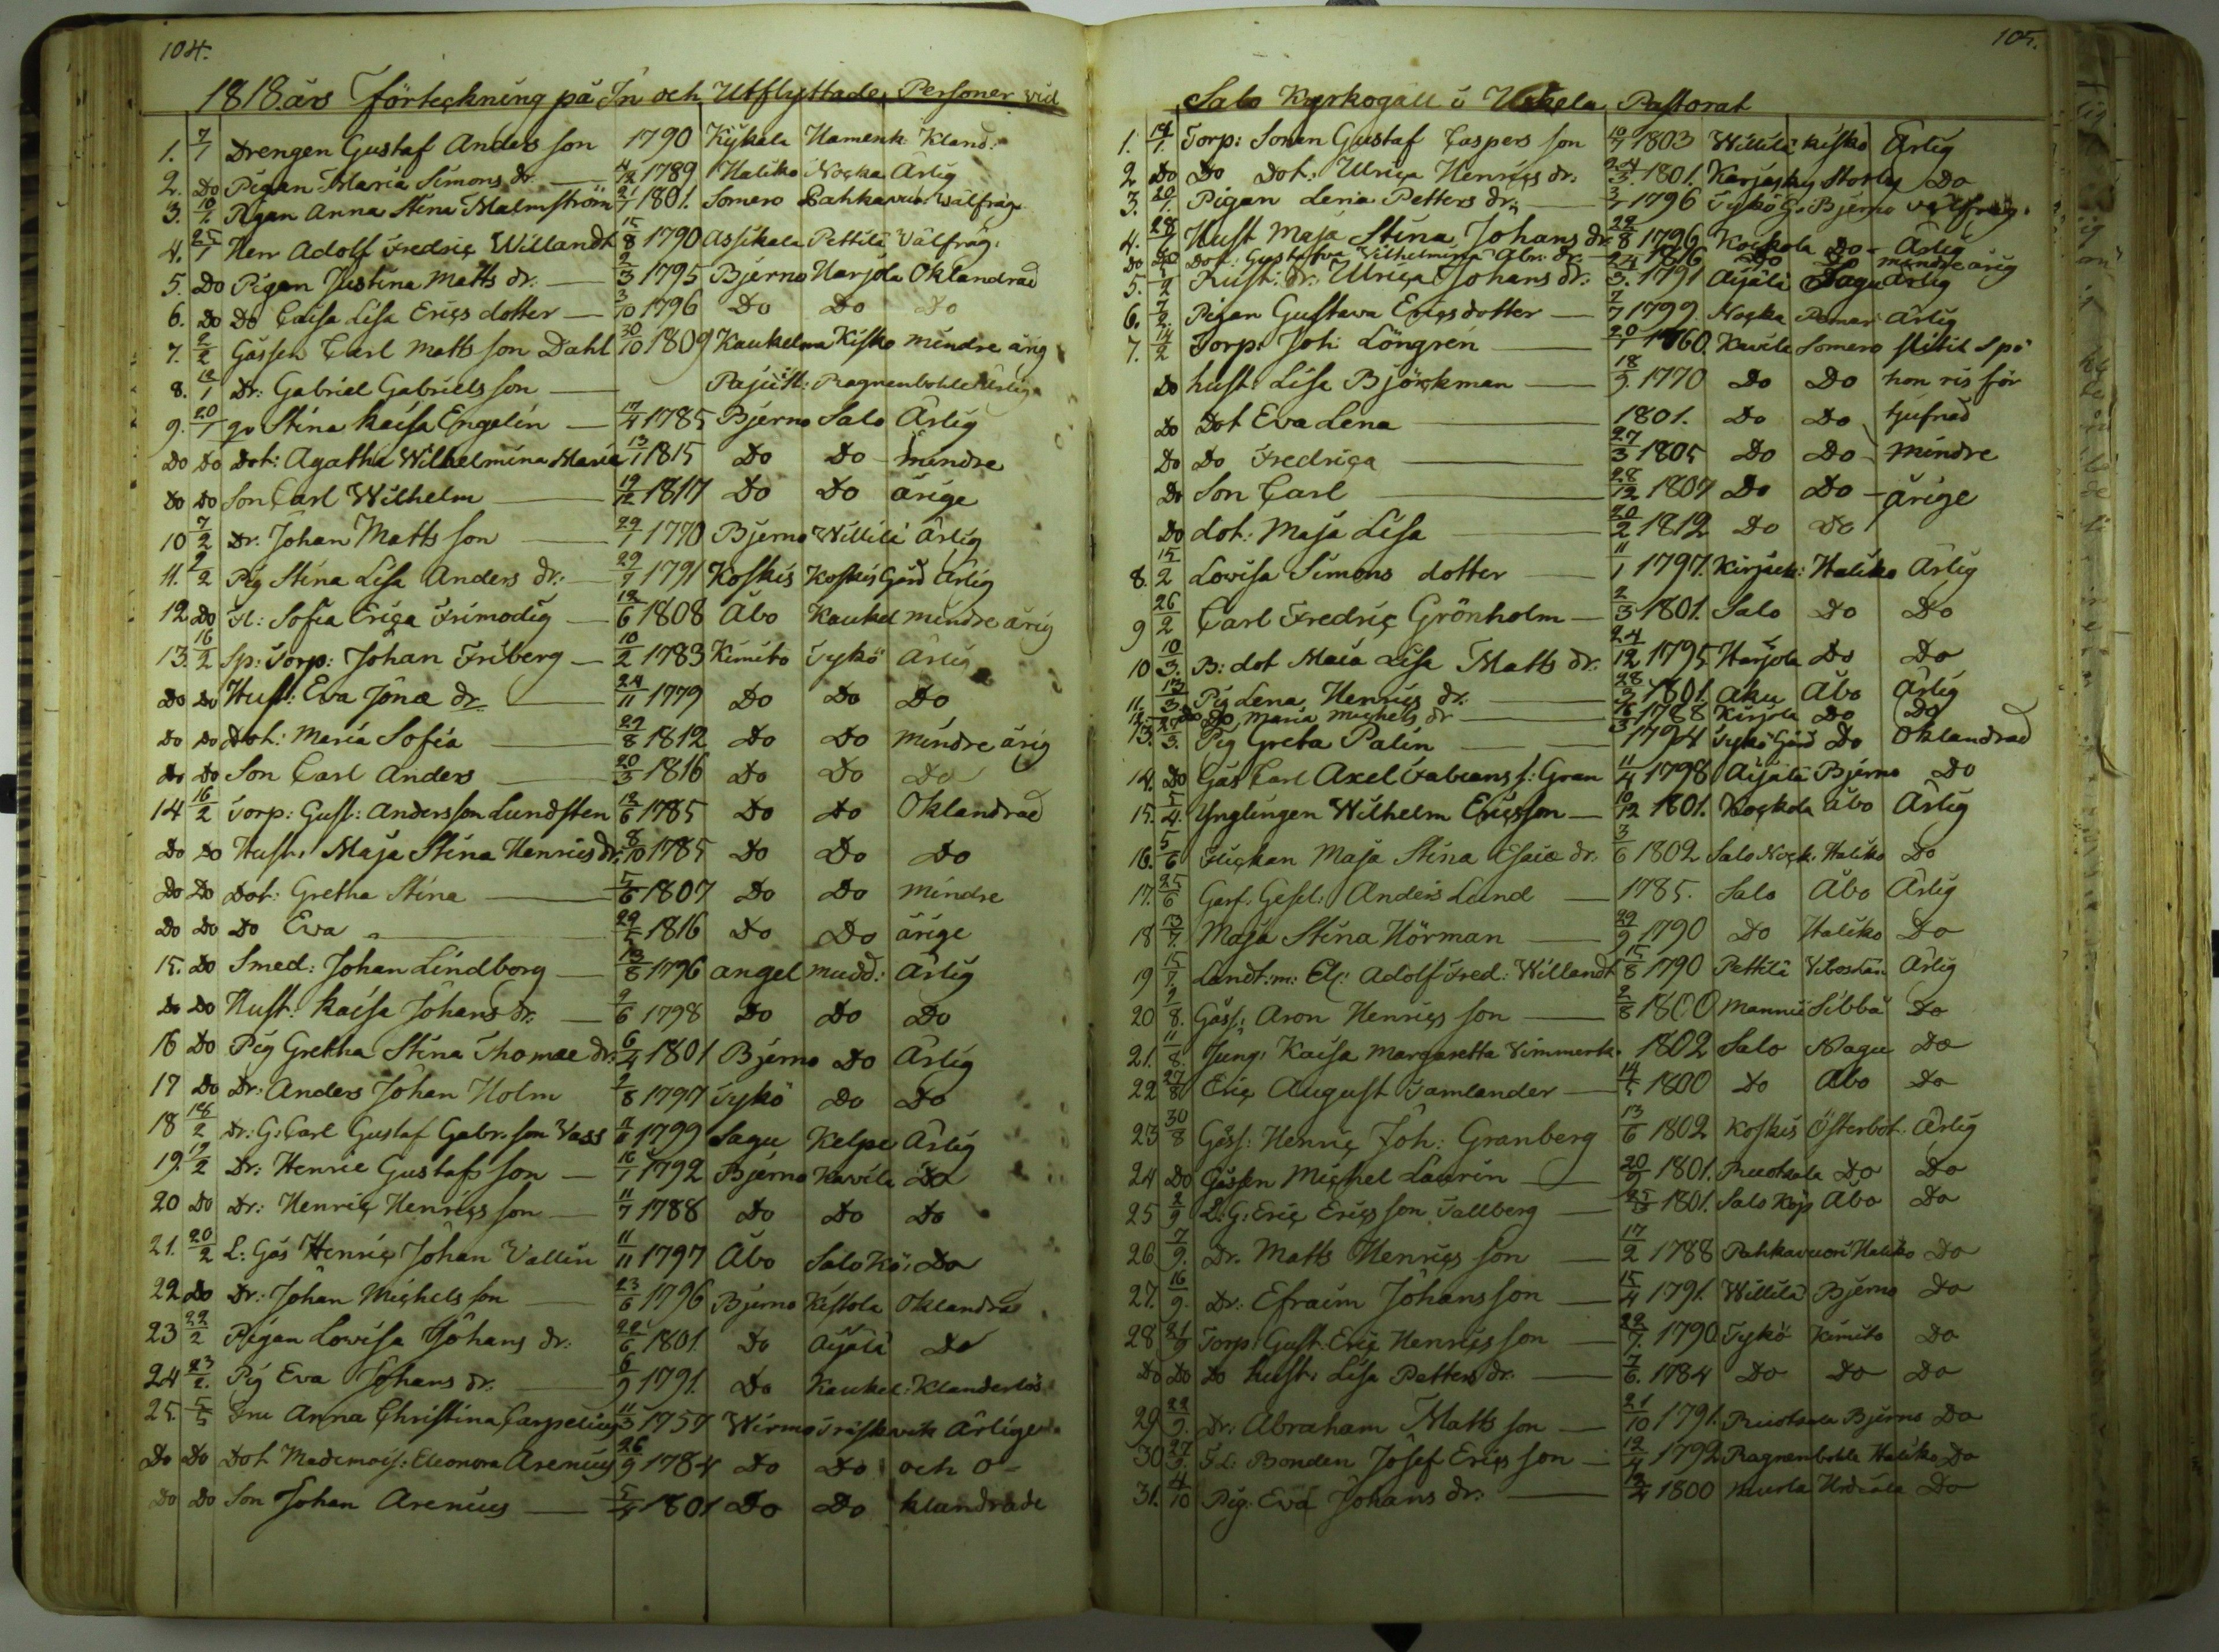 104.
1818 års Förteckning på In och Utflyttade Personer vid
1. 7/1 Drengen Gustaf Anders son 1790 Kijkala Hamenk Kland:
2. Do Pigan Maria Simons dr. 4/12 1789 Haliko Nocka Ärlig
3. 10/1. Pigan Anna Stina Malmström 21/7 1801. Somero Pahkavuo: Wälfräg
4. 25/1 Herr Adolf Fredric Willandt 15/8 1790 Assikala Pettilä Välfräg:
5. Do Pigan Justina Matts dr. 2/3 1795 Bjerno Harjola Oklandrad
6. Do Do Caisa Lisa Erics dotter 3/10 1796 Do Do Do
7. 2/2 Gåssen Carl Matts son Dahl 30/10 1809 Kaukelma Kisko mindre årig
8. 12/1 Dr: Gabriel Gabriels son Pajust: Pragnenbohle Ärlig
9. 20/1 gv Stina Kaisa Engelin 17/4 1785 Bjerno Salo Ärlig
Do Do Dot: Agatha Wilhelmina Maria 13/1 1815 Do Do mindre
Do Do Son Carl Wilhelm 19/12 1817 Do Do årige
10 7/2 Dr. Johan Matts son 29/1 1770 Bjerno Willilä Ärlig
11. 2/2 Pig Stina Lisa Anders dr: 29/7 1791 Koskis Koskis Gård Ärlig
12 Do Fl: Sofia Erica Frimodig 12/6 1808 Åbo Kaukel mindre årig
13. 16/2 Sp: Torp: Johan Friberg 10/2 1783 Kimito Tykö Ärlig
Do Do Hust: Eva Jonæ dr 24/11 1779 Do Do Do
Do Do Dot: Maria Sofia 29/8 1812 Do Do mindre årig
Do Do Son Carl Anders 20/3 1816 Do Do Do
14 16/2 Torp: Gust: Andersson Lundsten 12/6 1785 Do Do Oklandrad
Do Do Hustr: Maja Stina Henrics dr. 8/10 1785 Do Do Do
Do Do Dot: Gretha Stina 5/6 1807 Do Do mindre
Do Do Do Eva 29/5 1816 Do Do årige
15. Do Smed: Johan Lindborg 13/8 1796 angel mudd: Ärlig
Do Do Hust: Kaisa Johans dr. 9/6 1798 Do Do Do
16 Do Pig Gretha Stina Thomæ dr: 6/4 1801 Bjerno Do Ärlig
17 Do Dr: Anders Johan Holm 2/8 1797 Tykö Do Do
18 18/2 Dr: G: Carl Gustaf Gabr. son Vass 1799 Sagu Kelpe Ärlig
19. 19/2 Dr: Henric Gustafs son 16/1 1792 Bjerno Kavila Do
20 Do Dr: Henric Henrics son 11/7 1788 Do Do Do
21. 20/2 L: Gås Henric Johan Vallin 11/11 1797 Åbo Salo Kö: Do
22 Do Dr: Johan Michels son 23/6 1796 Bjerno Kistola Oklandrad
23 22/2 Pigan Lovisa Johans dr: 22/6 1801. Do Aijälä Do
24 23/2. Pig Eva Johans dr. 6/9 1791. Do Kaukel: Klanderlös
25. 5/5 Fru Anna Christina Carpelius 11/3 1757 Wirmo Friskvik Ärlige
Do Do Dot Mademois: Eleonora Arenius 26/9 1784 Do Do och o-
Do Do Son Johan Arenius 5/4 1801 Do Do klandrade
105.
Salo Kyrkogäll i Uskela Pastorat
1. 14/1. Torp: Sonen Gustaf Caspers son 10/7 1803 Willilä Kisko Ärlig
2 Do Do Dot: Ulrica Henrics dr: 24/3. 1801. Karjasky Storby Do
3. 20/1. Pigan Lena Petters dr: 3/7 1796 Tykö G: Bjerno välfräg.
4. 28/1 Hust Maja Stina Johans dr 22/8 1796 Kockola Do Ärlig
Do Do Dot: Gustafva Vilhelmina Abr: dr. 24 1816 Do Do mindre årig
5. 1/2 Hust: dr: Ulrica Johans dr: 3. 1791 Aijälä Sagu Ärlig
6. 7/2. Pigan Gustava Erics dotter 2/7 1799. Nocka Pemar Ärlig
7. 14/2 Torp: Joh: Löngren 20/1 1760. Kavila Somero slitit spö
Do hust: Lisa Björckman 18/9. 1770 Do Do hon ris för
Do Dot Eva Lena 1801. Do Do tjufnad
Do Do Fredrica 27/3 1805 Do Do mindre
Do Son Carl 28/12 1807 Do Do årige
Do dot: Maja Lisa 20/2 1812 Do Do
8. 15/2 Lovisa Simons dotter 11/1 1797. Kirjack: Haliko Ärlig
9 26/2 Carl Fredric Grönholm 2/3 1801. Salo Do Do
10 10/3. B: dot Maia Lisa Matts dr. 24/12 1795 Harjola Do Do
11. 13/3. Pig Lena Henrics dr. 28/3 1801. aku Åbo Ärlig
12. Do Do Maria Michels dr 1788 Kirjola Do Do
13. 27/3. Pig Greta Palin 1794 Tykö Gård Do Oklandrad
14. Do Gås Carl Axel Fabians s: Gran 11/4 1798 Aijälä Bjerno Do
15. 5/4. Ynglingen Wilhelm Ericsson 10/12 1801. Kockola Åbo Ärlig
16. 5/6 Flickan Maja Stina Esaiæ dr. 3/6 1802 Salo Nock. Haliko Do
17. 25/6 Garf: Gesel: Anders Lund 1785. Salo Åbo Ärlig
18 13/7. Maja Stina Hörman 29/9 1790 Do Haliko Do
19 15/7. Landt:m: El: Adolf Fred: Willandt 15/8 1790 Pettilä Viboslän Ärlig
20 9/8. Gåss: Aron Henrics son 2/8 1800 Mannii Sibbå Do
21. 11/8. Jung: Kaisa Margaretta Timmerk. 1802 Salo Nagu Do
22 27/8 Eric August Tamlander 14/5 1800 Do Åbo Do
23 30/8 Gåss: Henric Joh: Granberg 13/6 1802 Koskis Österbot. Ärlig
24 Do Gåssen Michel Laurin 20/9 1801. Ruotsala Do Do
25 2/9 L: G: Eric Ericsson Tallberg 25/3 1801. Salo Köp Åbo Do
26 7/9. Dr. Matts Henrics son 17/2 1788 Pahkavuori Haliko Do
27. 16/9. Dr: Efraim Johans son 15/4 1791. Willilä Bjerno Do
28 21/9 Torp: Gust: Eric Henrics son 22/7. 1790 Tykö Kimito Do
Do Do Do hustr: Lisa Petters dr. 7/6. 1784 Do Do Do
29 22/9. Dr: Abraham Matts son 21/10 1791. Ruotsala Bjerno Do
30 27/9. Fd: Bonden Josef Erics son 12/4 1792 Pragnenbohle Haliko Do
31. 4/10 Pig: Eva Johans dr. 12/4 1800 Murla Do